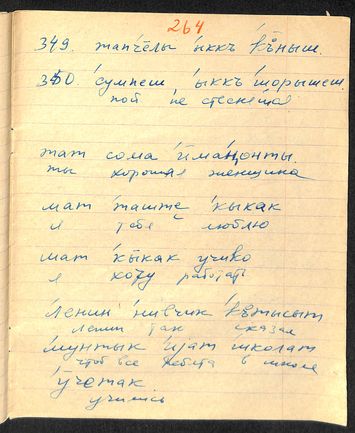 264
349. тапчёлы ыккъ къныш.
350. сумпеш ыккъ шорышеш.
пой не стесняйся
тат сома има
ты хорошая женщина
мат таште кыкак
я тебя люблю
мат кыкак учико
я хочу работать
Ленин нивчик кътысыт
Ленин так сказал
мунтык иjат школат
чтоб все ребята в школе
ӯчетак.
учились